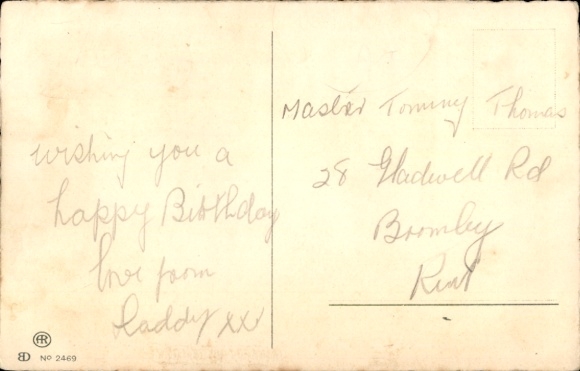 wishing you a
happy Birthday
love from
Daddy xx
Master Tommy Thomas
28 Gladwell Rd
Bromley
Kent
AR
BD No 2469